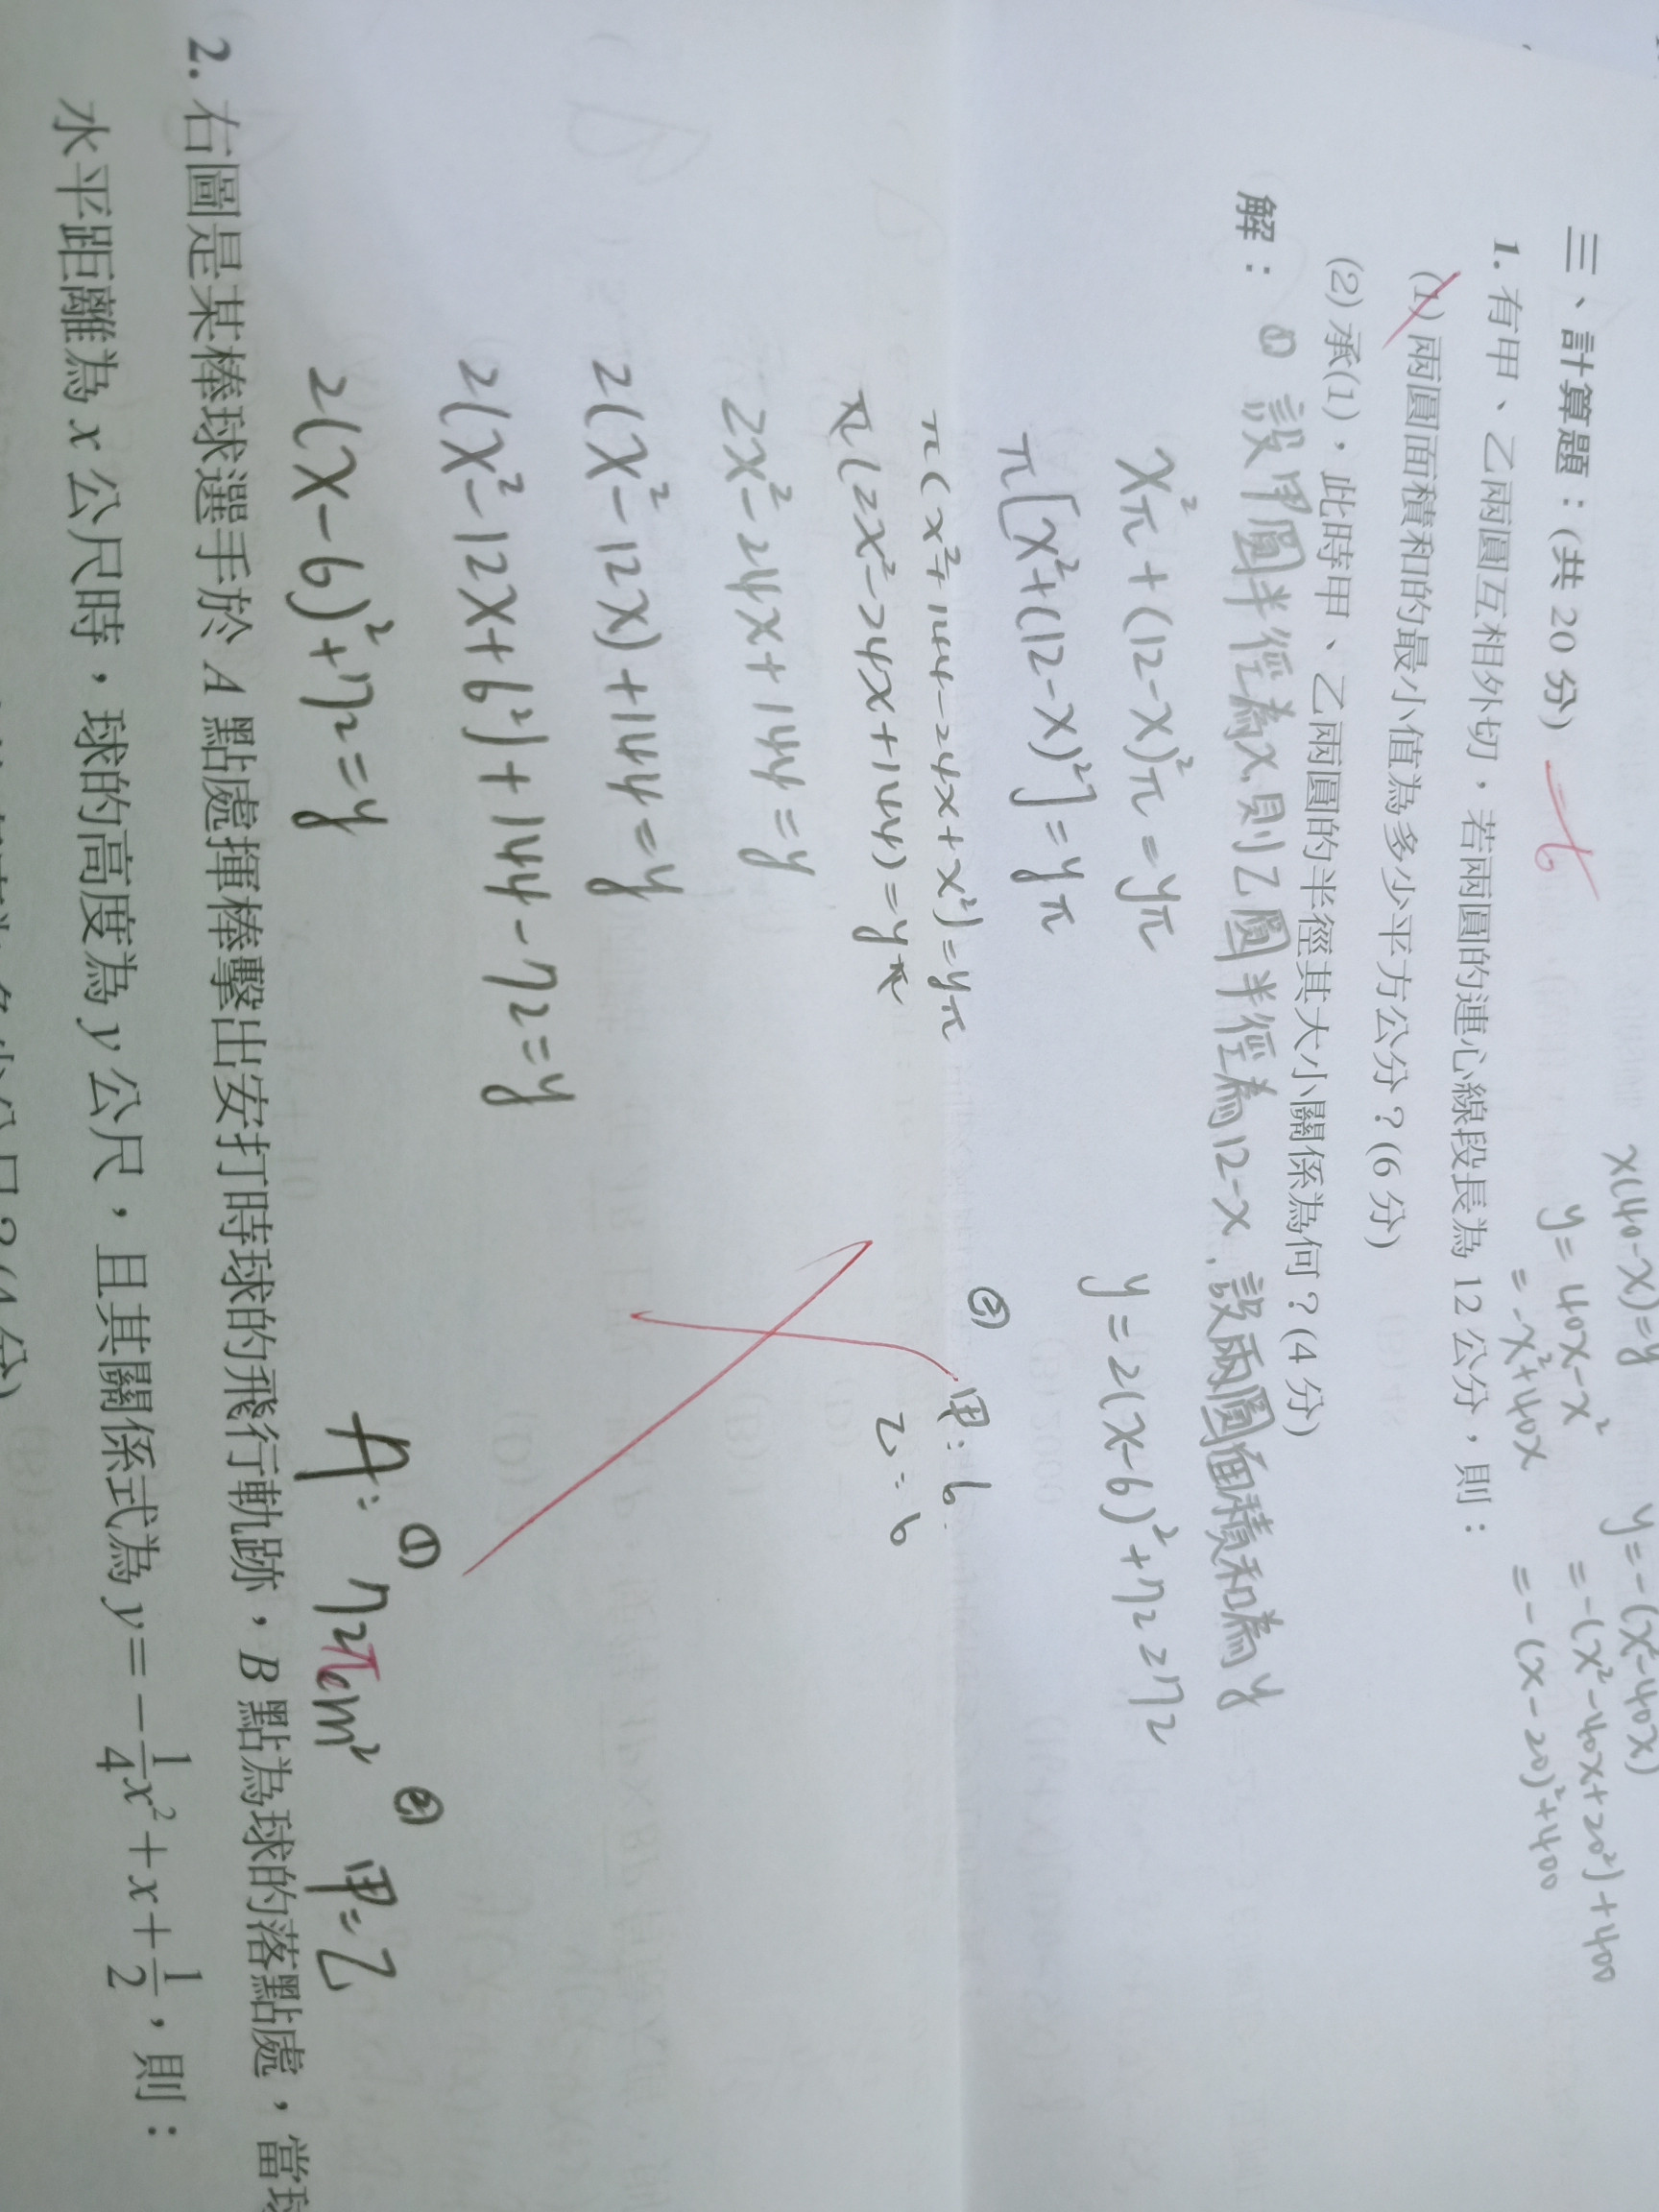 x(40-x)=y
y=40x-x²
=-x²+40x
y=-(x²-40x)
=-(x²-40x+20²)+400
=-(x-20)²+400
三、計算題：(共 20 分) -6
1. 有甲、乙兩圓互相外切，若兩圓的連心線段長為 12 公分，則：
(1) 兩圓面積和的最小值為多少平方公分？(6 分)
(2) 承(1)，此時甲、乙兩圓的半徑其大小關係為何？(4 分)
解：(1) 設甲圓半徑為x,則乙圓半徑為12-x,設兩圓面積和為y
x²π+(12-x)²π=yπ
π[x²+(12-x)²]=yπ
π(x²+144-24x+x²)=yπ
π(2x²-24x+144)=yπ
2x²-24x+144=y
2(x²-12x)+144=y
2(x²-12x+6²)+144-72=y
2(x-6)²+72=y
y=2(x-6)²+72≥72
(2) 甲:6
乙:6
A: (1) 72πcm² (2) 甲=乙
2. 右圖是某棒球選手於 A 點處揮棒擊出安打時球的飛行軌跡，B 點為球的落點處，當球
水平距離為 x 公尺時，球的高度為 y 公尺，且其關係式為 y=-1/4x²+x+1/2，則：